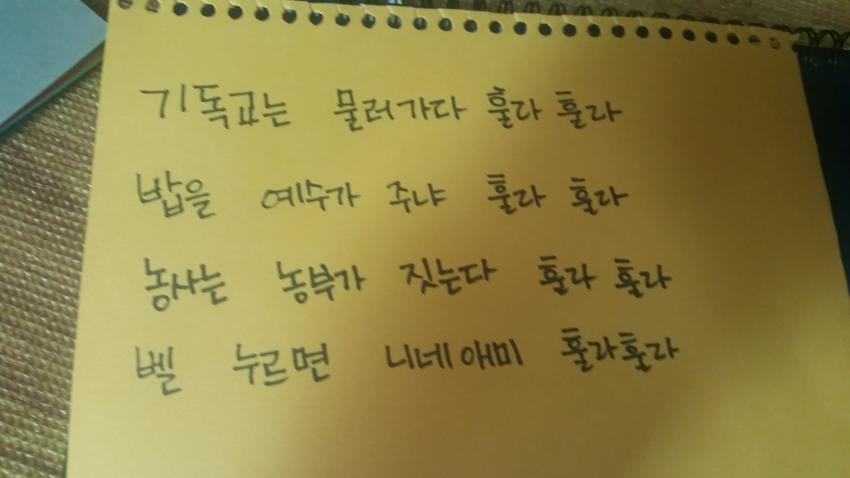 기독교는 물러가다 훌라 훌라
밥을 예수가 주냐 훌라 훌라
농사는 농부가 짓는다 훌라 훌라
벨 누르면 니네애미 훌라훌라